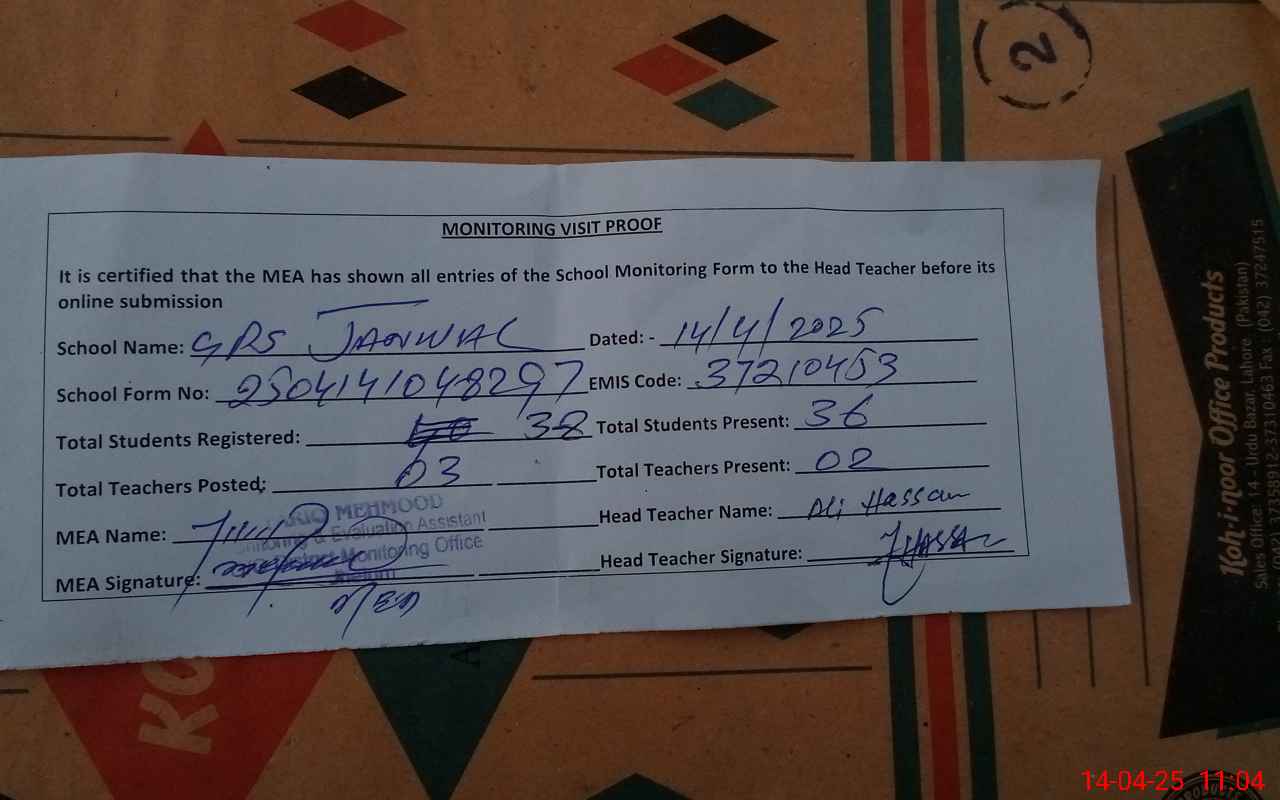 2
MONITORING VISIT PROOF
It is certified that the MEA has shown all entries of the School Monitoring Form to the Head Teacher before its
online submission
School Name: GPS JANWAL Dated: - 14/4/2025
School Form No: 2504141048297 EMIS Code: 37210453
Total Students Registered: 38 Total Students Present: 36
Total Teachers Posted: 03 Total Teachers Present: 02
MEA Name: MEHMOOD Head Teacher Name: Ali Hassan
& Evaluation Assistant
Monitoring Office
MEA Signature: Head Teacher Signature: HASSAN
MEA
Koh-i-noor Office Products
Sales Office: 14 - Urdu Bazar, Lahore. (Pakistan)
37358912-37310463 Fax : (042) 37247515
KO
PRODUCTS
14-04-25 11:04